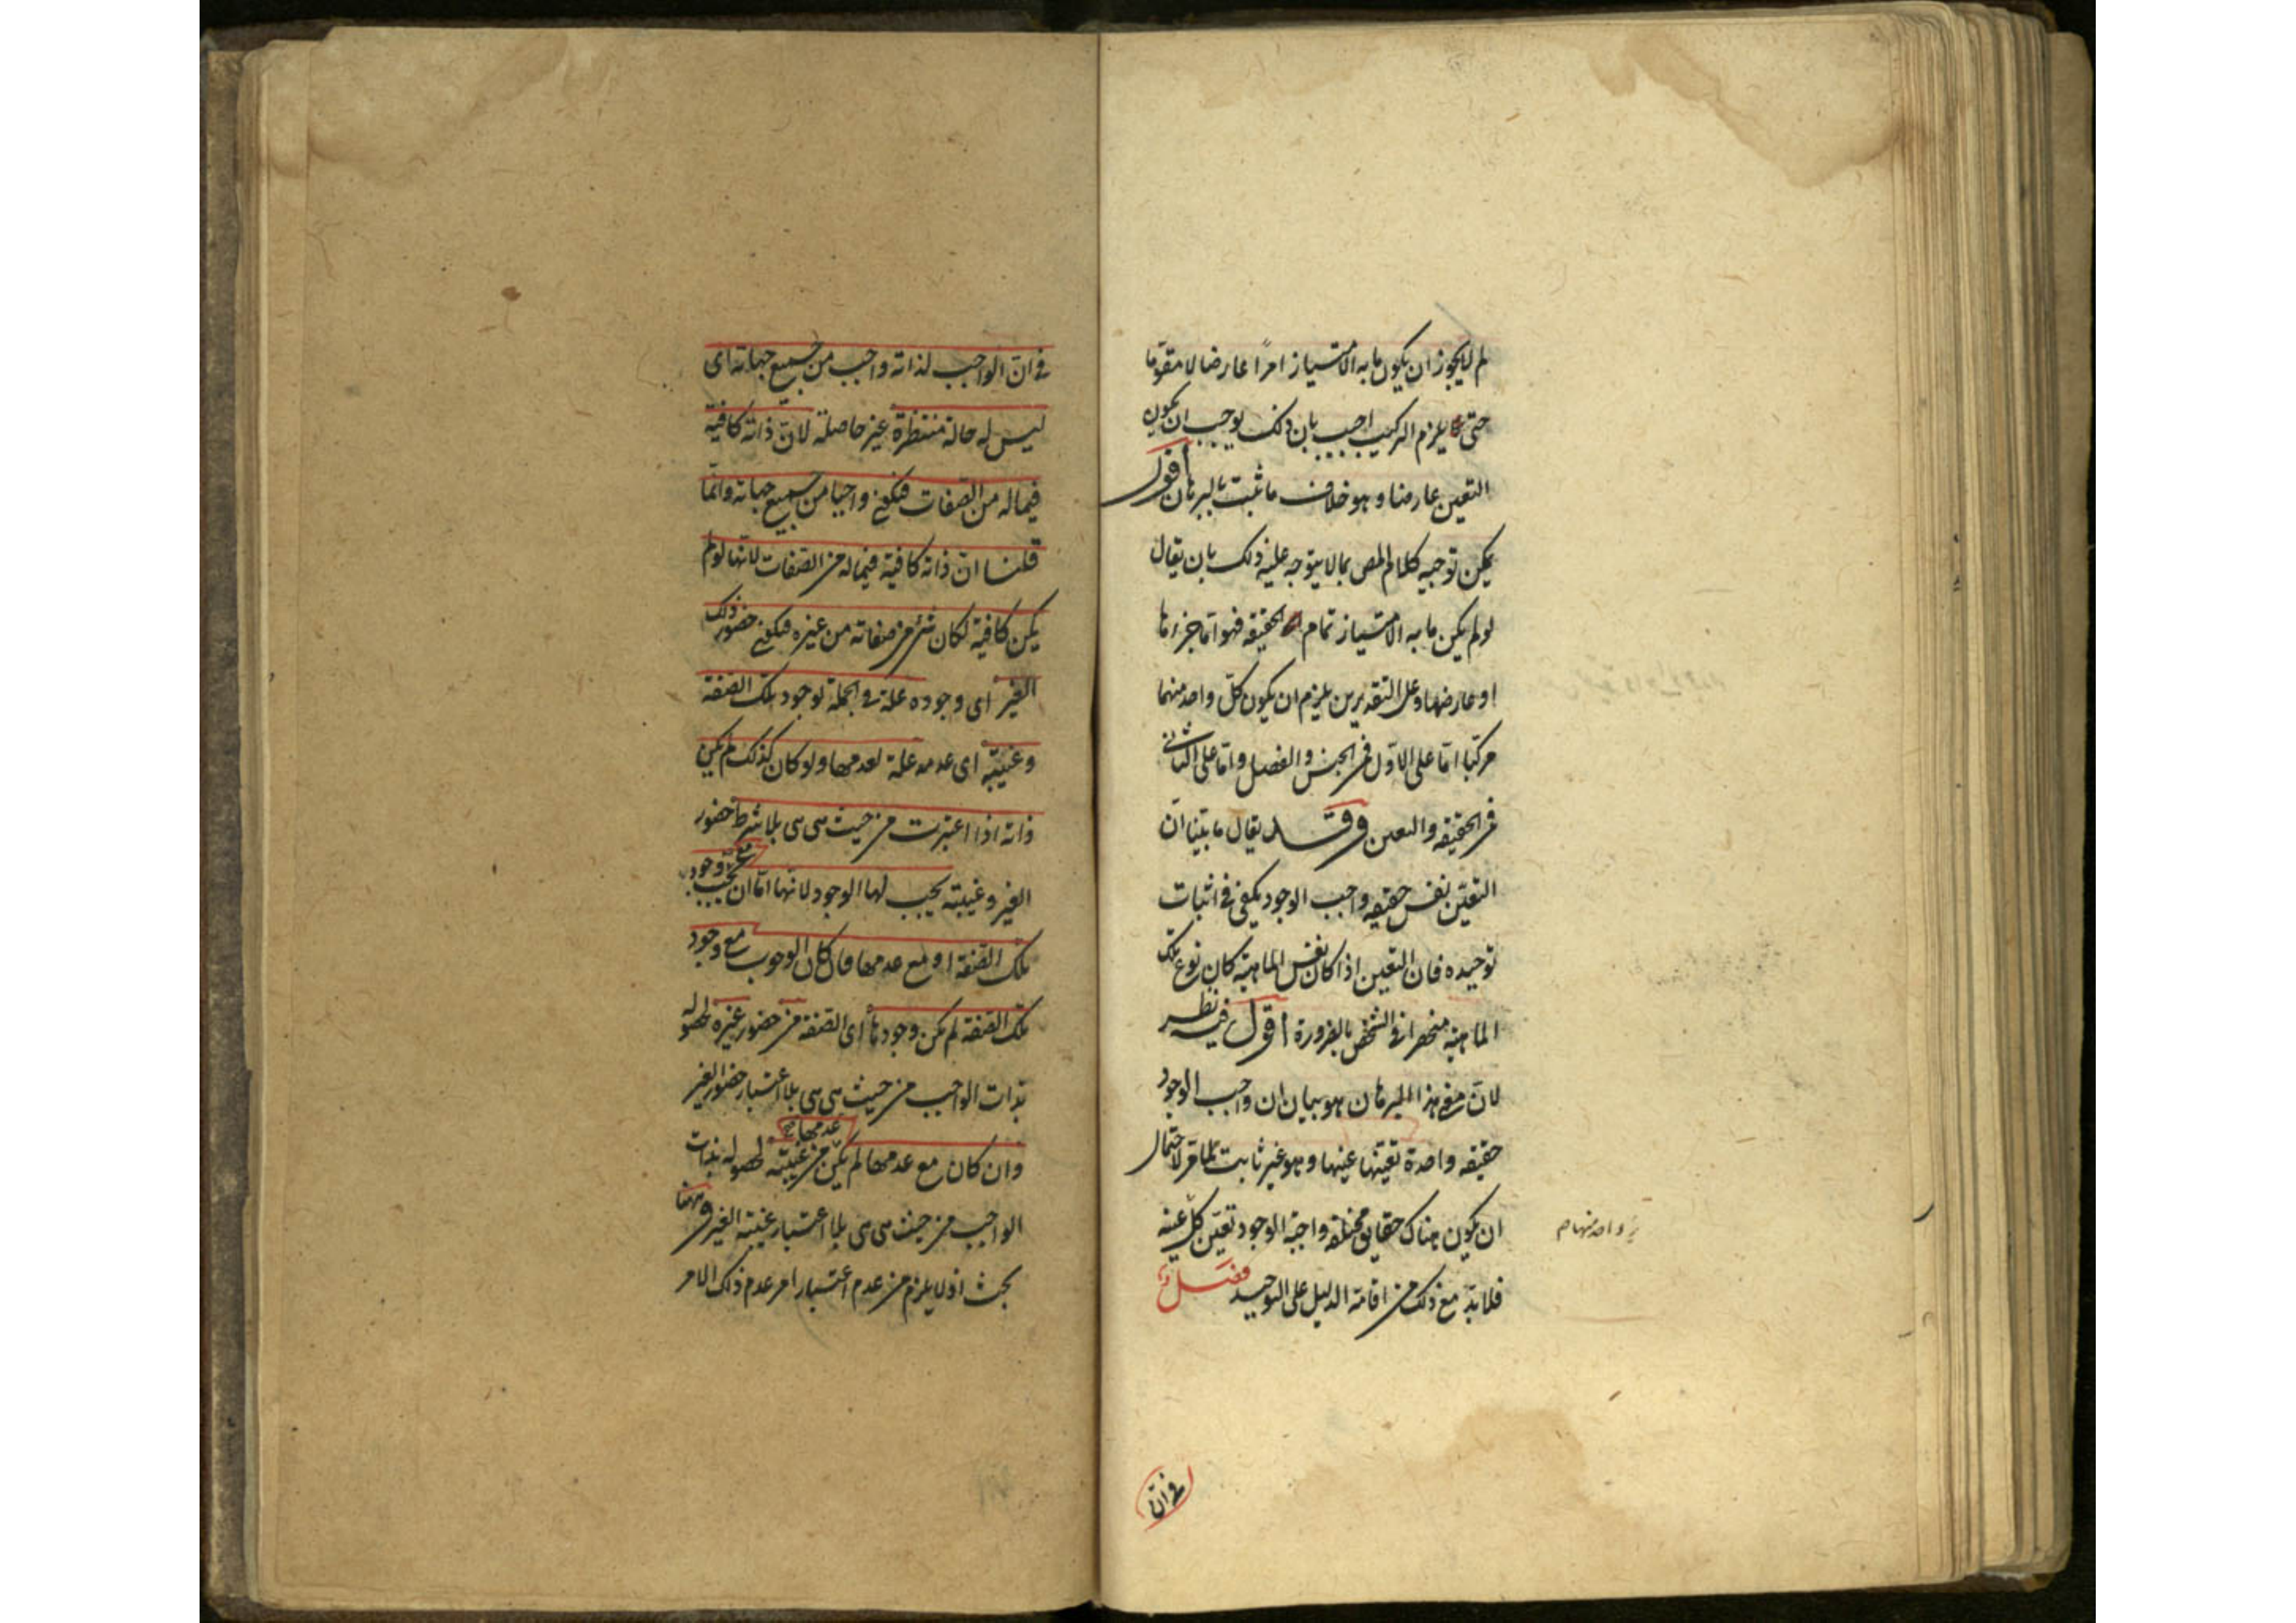 لم لا يجوز ان يكون ما به الامتياز امرًا عارضا لا مقوّما
حتى يلزم التركيب اجيب بان ذلك يوجب ان يكون
التعين عارضا وهو خلاف ما ثبت بالبرهان أقول
يمكن توجيه كلام المص بما لا يتوجه عليه ذلك بان يقال
لو لم يكن ما به الامتياز تمام الحقيقه فهو اما جزءها
او عارضها وعلى التقديرين يلزم ان يكون كلّ واحد منهما
مركبا امّا على الاوّل فمن الجنس والفصل وامّا على الثانى
فمن الحقيقه والتعين وقد يقال ما بيّنا انّ
التعيّن نفس حقيقه واجب الوجود يكفى فى اثبات
توحيده فان التعين اذا كان نفس الماهيّة كان نوع تلك
الماهيّة منحصرا فى الشخص بالضرورة أقول فيه نظر
لانّ معنى هذا البرهان هو بيان ان واجب الوجود
حقيقه واحدة تعيّنها عينها وهو غير ثابت لما مر لاحتمال
ان يكون هناك حقايق مختلفه واجبة الوجود تعيّن كلّ عينه
واحد منهما
فلابدّ مع ذلك من اقامة الدليل على التوحيد فصل
فى انّ
فى انّ الواجب لذاته واجب من جميع جهاته اى
ليس له حالة منتظرة غير حاصلة لانّ ذاته كافية
فيما له من الصفات فيكون واجبا من جميع جهاته وانّما
قلنا انّ ذاته كافية فيما له من الصفات لانّها لو لم
يكن كافية لكان شئ من صفاته من غيره فيكون حضور ذلك
الغير اى وجوده علة فى الجملة لوجود تلك الصفة
وغيبته اى عدمه علة لعدمها ولو كان كذلك لم يكن
ذاته اذا اعتبرت من حيث هى هى بلا شرط حضور
الغير وغيبته يجب لها الوجود لانّها امّا ان يجب مع وجود
تلك الصفة او مع عدمها فان كان الوجوب مع وجود
تلك الصفة لم يكن وجودها أى الصفة من حضور غيره لحصوله
بذات الواجب من حيث هى هى بلا اعتبار حضور الغير
وان كان مع عدمها لم يكن عدمها من غيبته لحصوله بذات
الواجب من حيث هى هى بلا اعتبار غيبة الغير وههنا
بحث اذ لا يلزم من عدم اعتبار امر عدم ذلك الامر